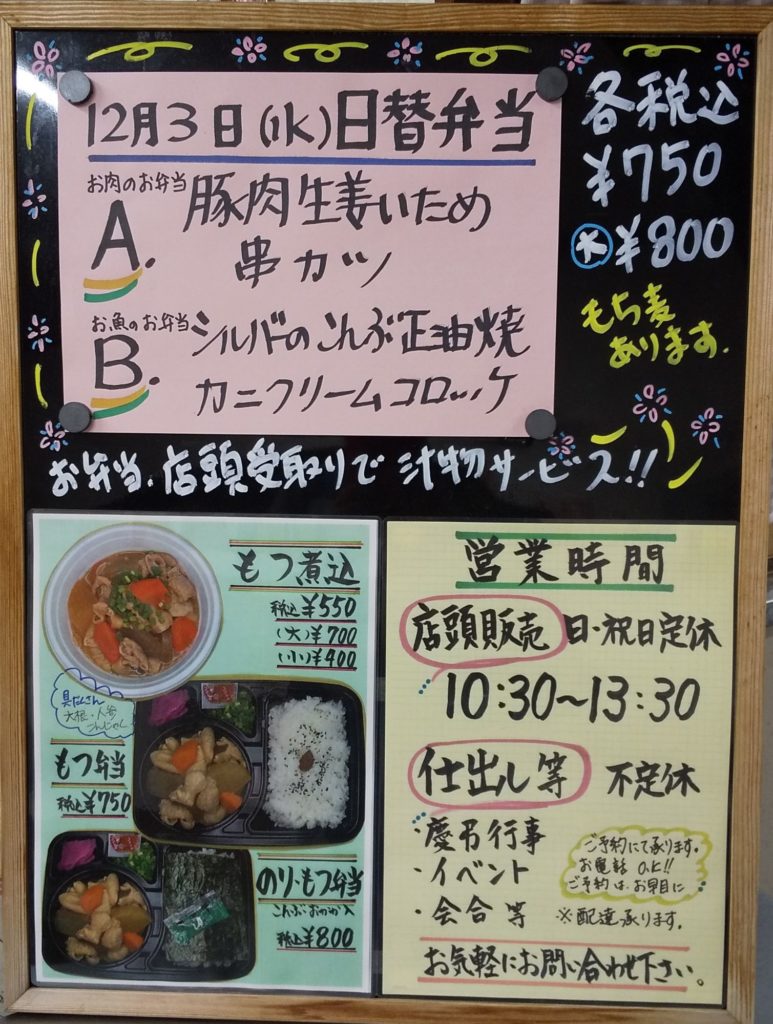 12月3日(水)日替弁当
お肉のお弁当
A.
豚肉生姜いため
串カツ
お魚のお弁当
B.
シルバーのこんぶ正油焼
カニクリームコロッケ
各税込
¥750
大 ¥800
もち麦
あります.
お弁当、店頭受取りで 汁物サービス!!
もつ煮込
税込¥550
(大)¥700
(小)¥400
具だくさん
大根・人参
こんにゃく
もつ弁当
税込¥750
のり・もつ弁当
こんぶ・おかか入
税込¥800
営業時間
店頭販売 日・祝日定休
10:30〜13:30
仕出し等 不定休
・慶弔行事
・イベント
・会合等
ご予約にて承ります。
お電話 OK!!
ご予約は、お早目に
※配達承ります。
お気軽にお問い合わせ下さい。